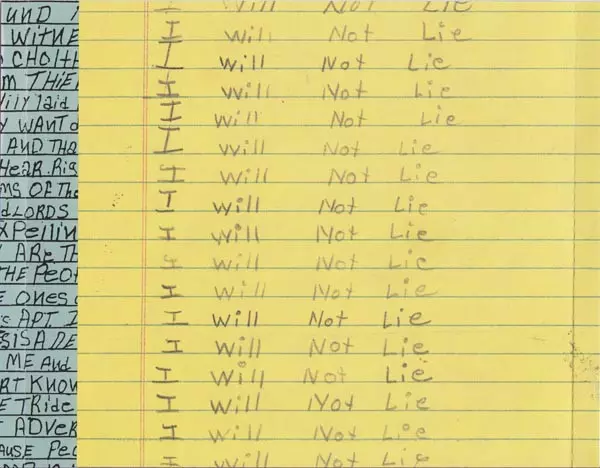 I will Not Lie
I will Not Lie
I will Not Lie
I will Not Lie
I will Not Lie
I will Not Lie
I will Not Lie
I will Not Lie
I will Not Lie
I will Not Lie
I will Not Lie
I will Not Lie
I will Not Lie
I will Not Lie
I will Not Lie
I will Not Lie
I will Not Lie
UND
WITNE
CHOLTH
M THIE
illy laid
WANT
AND THA
HEAR. Rig
MS OF The
d LORDS
XPellin
ARE TH
THE PeoP
E ONES
APT. I
SISADE
ME And
RT KNOW
E TRide
T ADVER
AUSE Peo